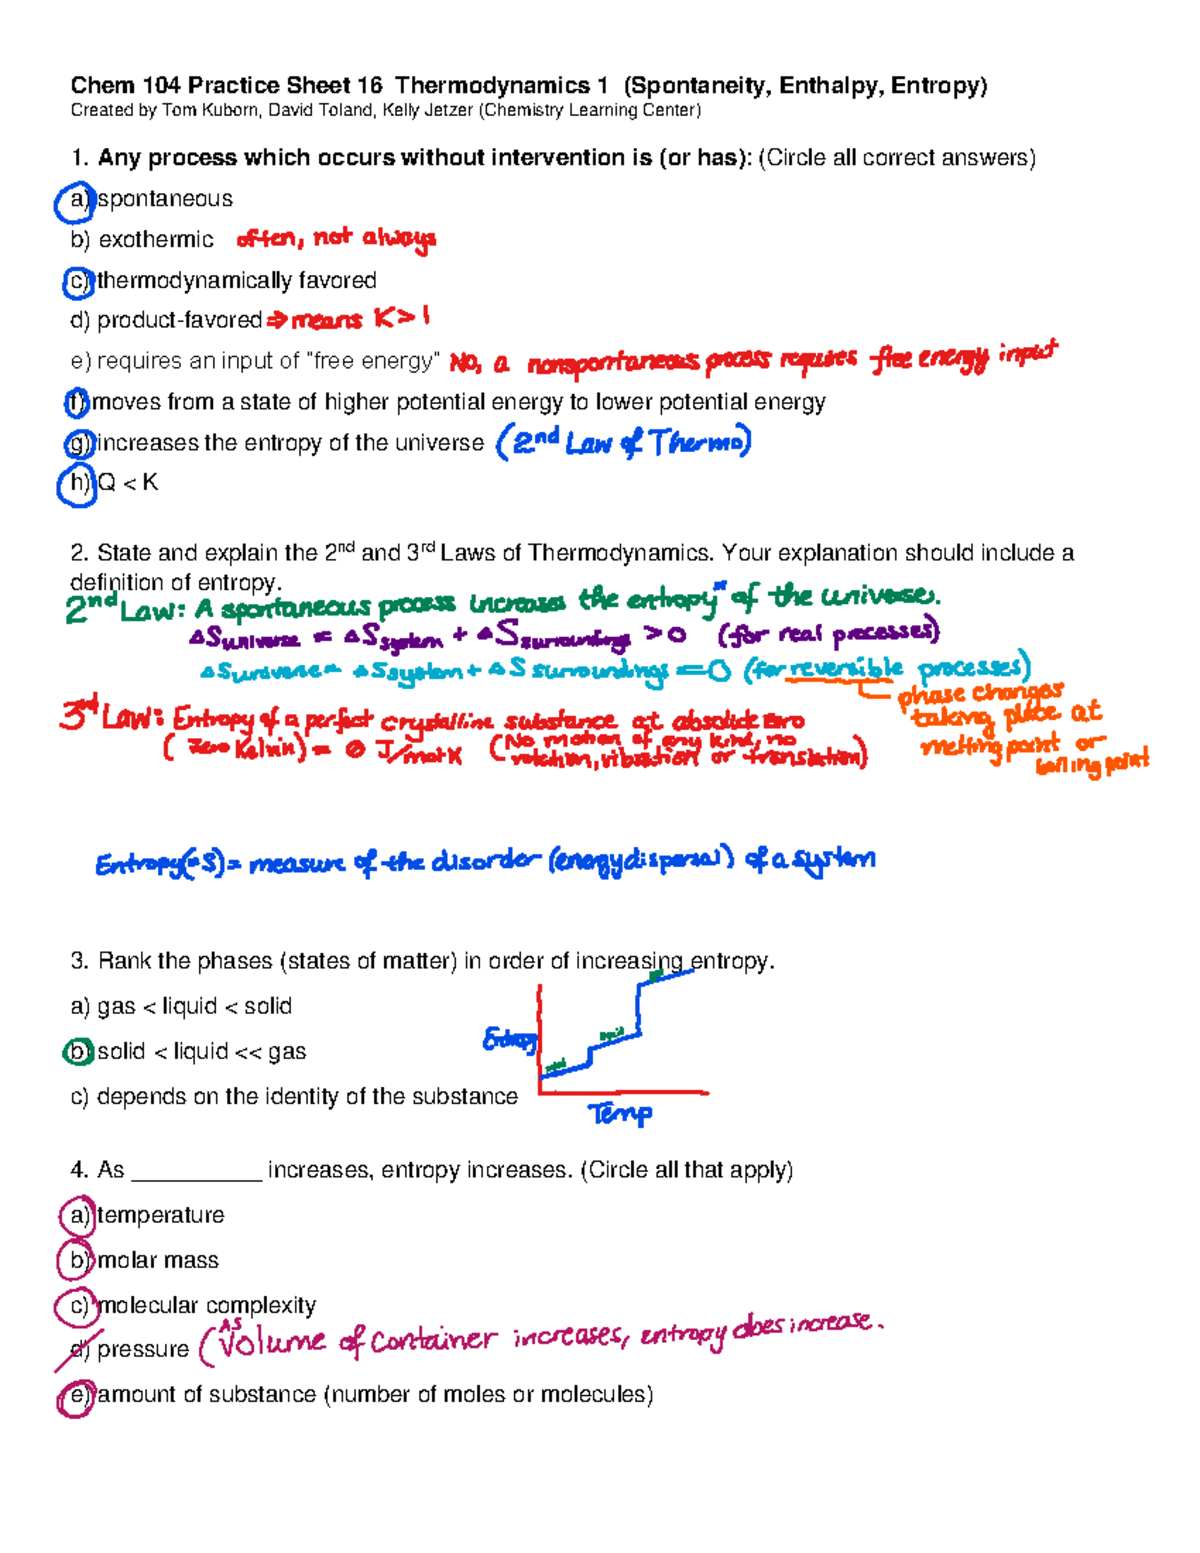 Chem 104 Practice Sheet 16 Thermodynamics 1 (Spontaneity, Enthalpy, Entropy)
Created by Tom Kuborn, David Toland, Kelly Jetzer (Chemistry Learning Center)
1. Any process which occurs without intervention is (or has): (Circle all correct answers)
a) spontaneous
b) exothermic often, not always
c) thermodynamically favored
d) product-favored ⇒ means K > 1
e) requires an input of "free energy" No, a nonspontaneous process requires free energy input
f) moves from a state of higher potential energy to lower potential energy
g) increases the entropy of the universe (2nd Law of Thermo)
h) Q < K
2. State and explain the 2nd and 3rd Laws of Thermodynamics. Your explanation should include a
definition of entropy.
2nd Law: A spontaneous process increases the entropy* of the universe.
ΔSuniverse = ΔSsystem + ΔSsurroundings > 0 (for real processes)
ΔSuniverse = ΔSsystem + ΔSsurroundings = 0 (for reversible processes)
phase changes
taking place at
melting point or
boiling point
3rd Law: Entropy of a perfect crystalline substance at absolute zero
(Zero Kelvin) = 0 J/mol K (No motion of any kind, no
rotation, vibration or translation)
Entropy (=S) = measure of the disorder (energy dispersal) of a system
3. Rank the phases (states of matter) in order of increasing entropy.
a) gas < liquid < solid
b) solid < liquid << gas
c) depends on the identity of the substance
Entropy
solid
liquid
Temp
4. As __________ increases, entropy increases. (Circle all that apply)
a) temperature
b) molar mass
c) molecular complexity
d) pressure (As Volume of container increases, entropy does increase.
e) amount of substance (number of moles or molecules)